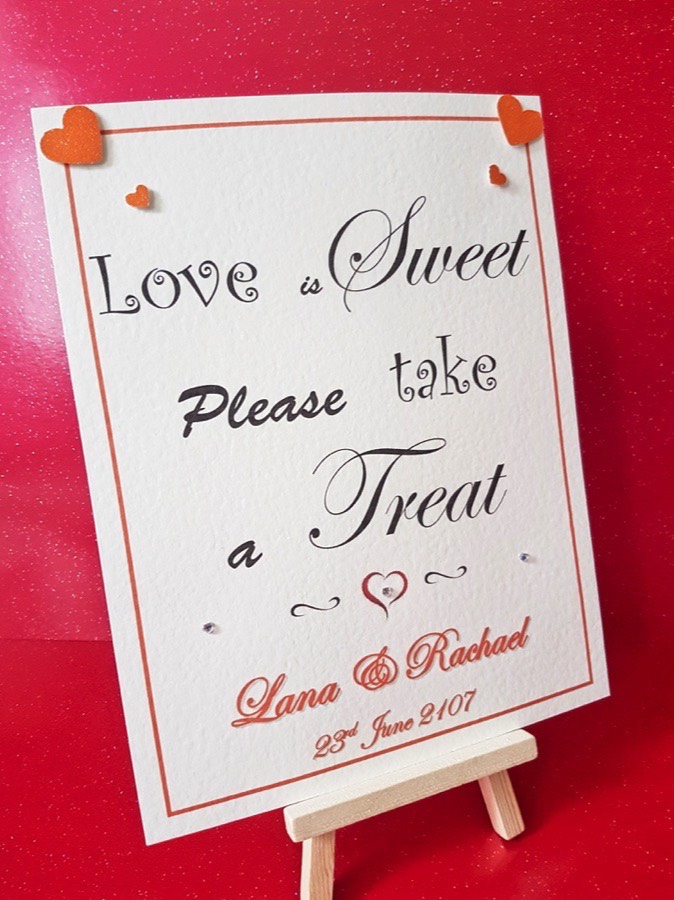 Love is Sweet
Please take
a Treat
Lana & Rachael
23rd June 2107